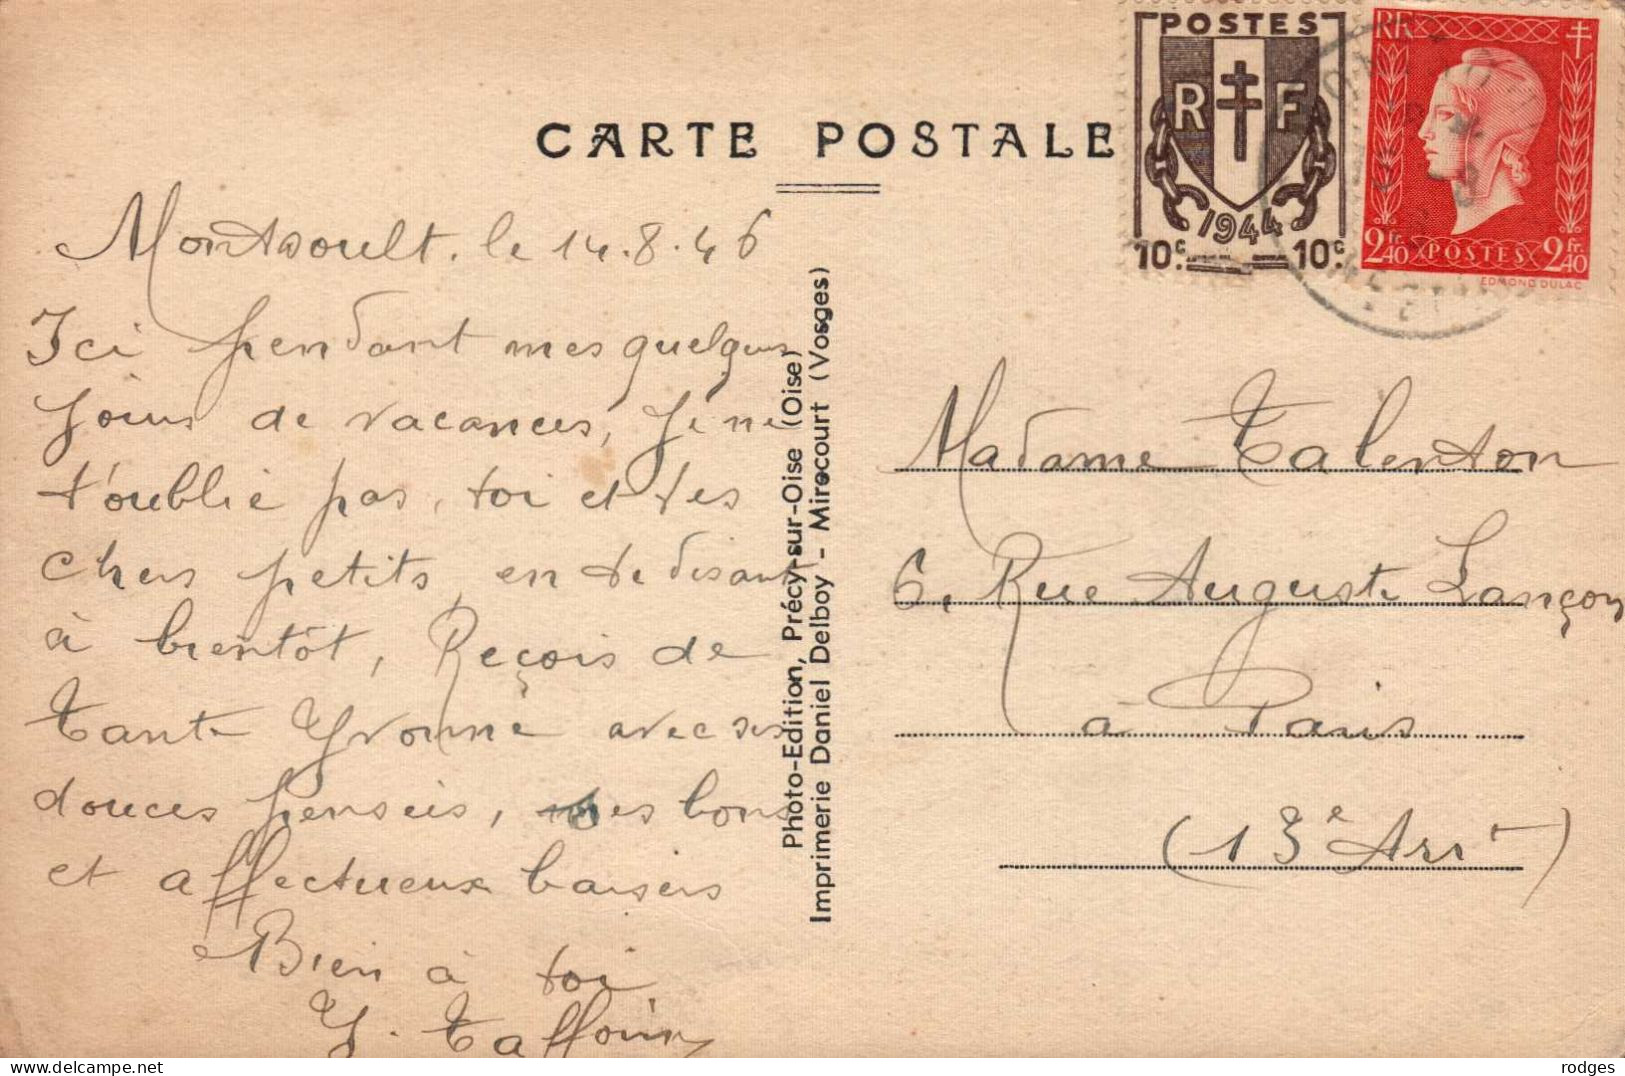 CARTE POSTALE
POSTES
RF
1944
10c. 10c.
RF
2fr.40 POSTES 2fr.40
EDMOND DULAC
Montsoult. le 14.8.46
Ici pendant mes quelques
jours de vacances, je ne
t'oublie pas, toi et tes
chers petits, en te disant
à bientôt, Reçois de
Tante Yvonne avec ses
douces pensées, mes bons
et affectueux baisers
Bien à toi
Y.
Photo-Edition, Précy-sur-Oise (Oise)
Imprimerie Daniel Delboy - Mirecourt (Vosges)
Madame Talenton
6, Rue Auguste Lançon
à Paris
(13e Arrt)
rodges